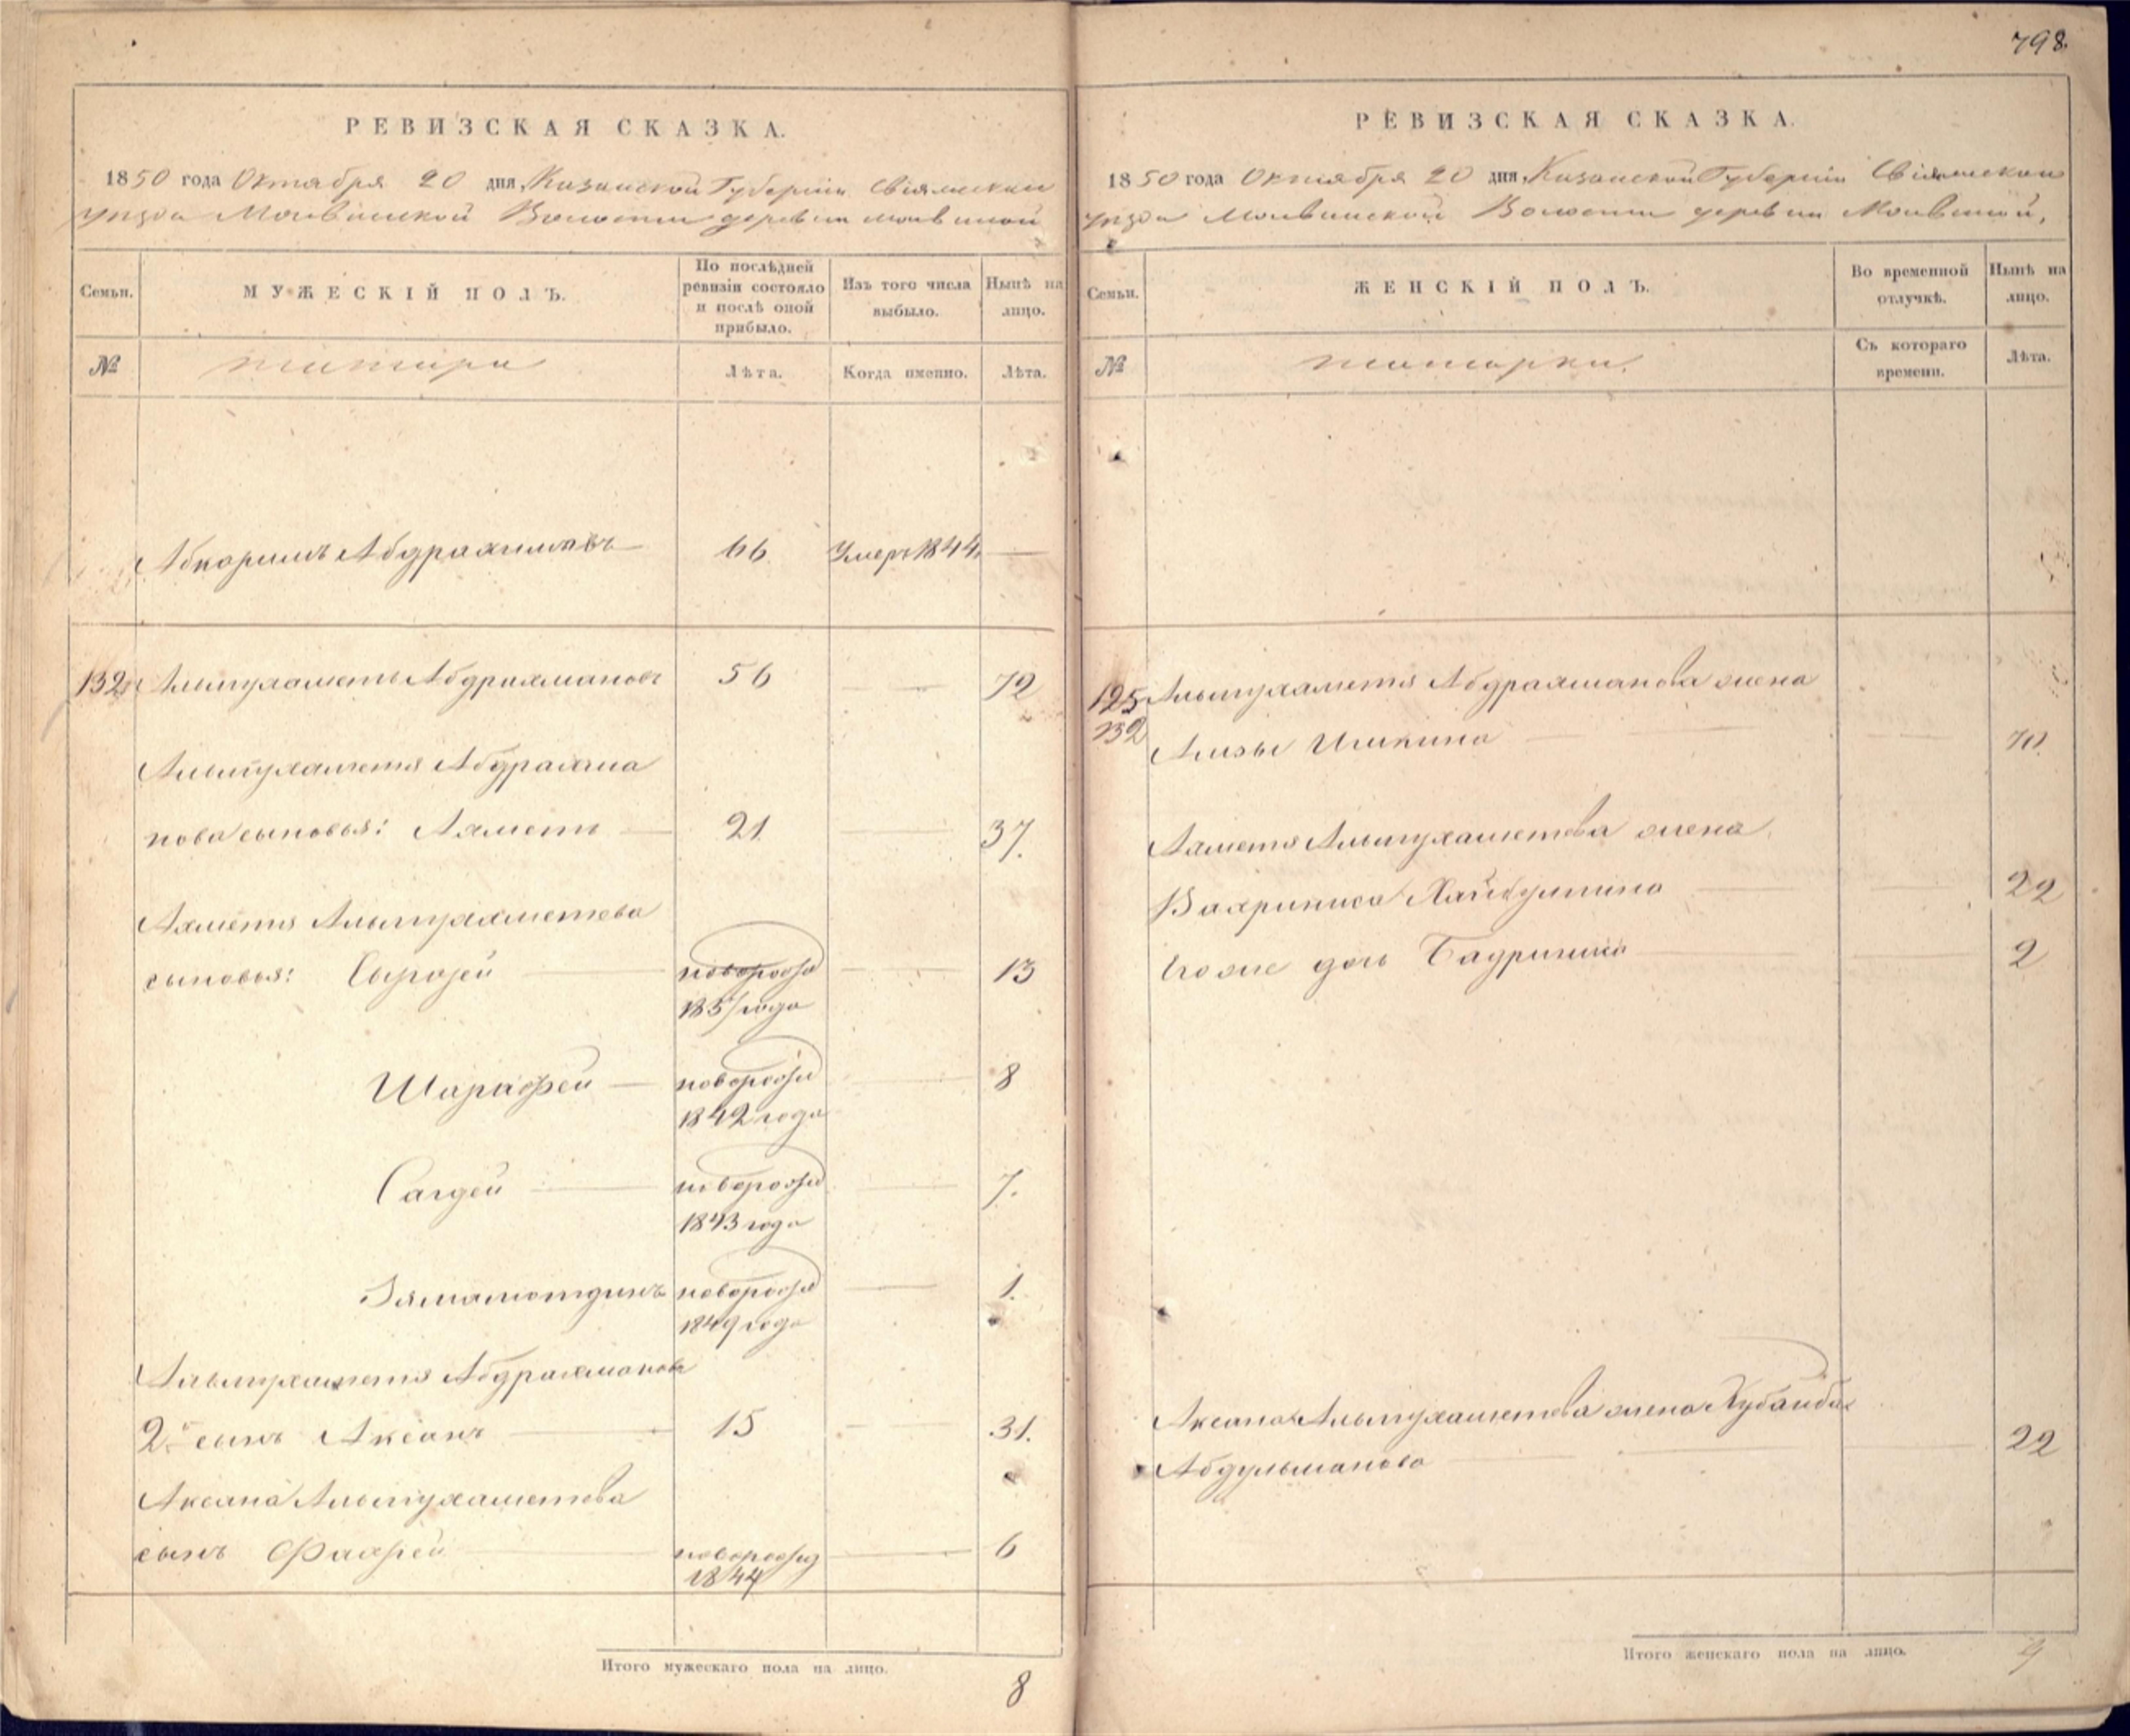 798.
РЕВИЗСКАЯ СКАЗКА.
1850 года Октября 20 дня, Казанской Губернiи Свiяжскаго
уезда Молвинской Волости деревни Молвиной
Семьи.
МУЖЕСКIЙ ПОЛЪ.
По послѣдней
ревизiи состояло
и послѣ оной
прибыло.
Изъ того числа
выбыло.
Нынѣ на
лицо.
№
татара
Лѣта.
Когда именно.
Лѣта.
Абкаримъ Абдрахимовъ 66 Умеръ 1844
132 Альмухаметь Абдрахмановъ 56 72
Альмухаметя Абдрахма
нова сыновья: Ахметь 21 37.
Ахметя Альмухаметева
сыновья: новорожд 13
1837 года
Шарафей новорожд 8
1842 года
Сагдей новорожд 7.
1843 года
Зямалютдинъ новорожд 1.
1849 года
Альмухаметя Абдрахманова
2й сынъ Аксанъ 15 31.
Аксана Альмухаметева
сынъ Фахрей новорожд 6
1844
Итого мужескаго пола на лицо.
8
РЕВИЗСКАЯ СКАЗКА.
1850 года Октября 20 дня, Казанской Губернiи Свiяжскаго
уезда Молвинской Волости деревни Молвиной,
Семьи.
ЖЕНСКIЙ ПОЛЪ.
Во временной
отлучкѣ.
Нынѣ на
лицо.
№
татарки.
Съ котораго
времени.
Лѣта.
125 Альмухаметя Абдрахманова жена
132 70.
Ахметя Альмухаметева жена
22
дочь Бадриниса 2
Аксана Альмухаметева жена Хубайба
Абдульманова 22
Итого женскаго пола на лицо.
4